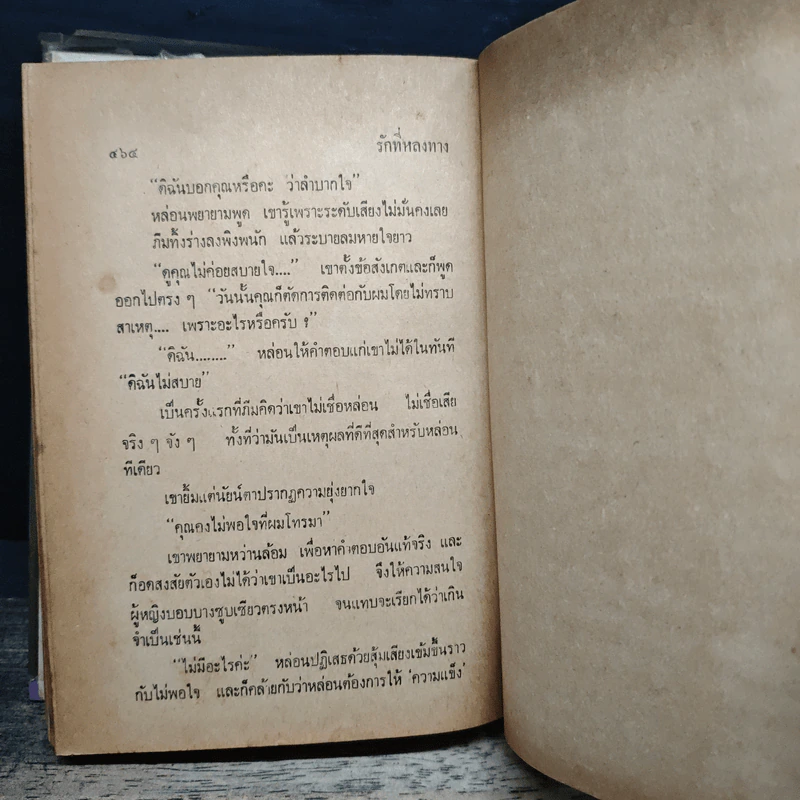 ๔๖๔ รักที่หลงทาง
“ดิฉันบอกคุณหรือคะ ว่าลำบากใจ”
หล่อนพยายามพูด เขารู้เพราะระดับเสียงไม่มั่นคงเลย
ภีมทิ้งร่างลงพิงพนัก แล้วระบายลมหายใจยาว
“ดูคุณไม่ค่อยสบายใจ....” เขาตั้งข้อสังเกตและก็พูด
ออกไปตรง ๆ “วันนั้นคุณก็ตัดการติดต่อกับผมโดยไม่ทราบ
สาเหตุ.... เพราะอะไรหรือครับ ?”
“ดิฉัน........” หล่อนให้คำตอบแก่เขาไม่ได้ในทันที
“ดิฉันไม่สบาย”
เป็นครั้งแรกที่ภีมคิดว่าเขาไม่เชื่อหล่อน ไม่เชื่อเสีย
จริง ๆ จัง ๆ ทั้งที่ว่ามันเป็นเหตุผลที่ดีที่สุดสำหรับหล่อน
ทีเดียว
เขายิ้มแต่นัยน์ตาปรากฏความยุ่งยากใจ
“คุณคงไม่พอใจที่ผมโทรมา”
เขาพยายามหว่านล้อม เพื่อหาคำตอบอันแท้จริง และ
ก็อดสงสัยตัวเองไม่ได้ว่าเขาเป็นอะไรไป จึงให้ความสนใจ
ผู้หญิงบอบบางซูบเซียวตรงหน้า จนแทบจะเรียกได้ว่าเกิน
จำเป็นเช่นนี้
“ไม่มีอะไรค่ะ” หล่อนปฏิเสธด้วยสุ้มเสียงเข้มขึ้นราว
กับไม่พอใจ และก็คล้ายกับว่าหล่อนต้องการให้ ‘ความแข็ง’